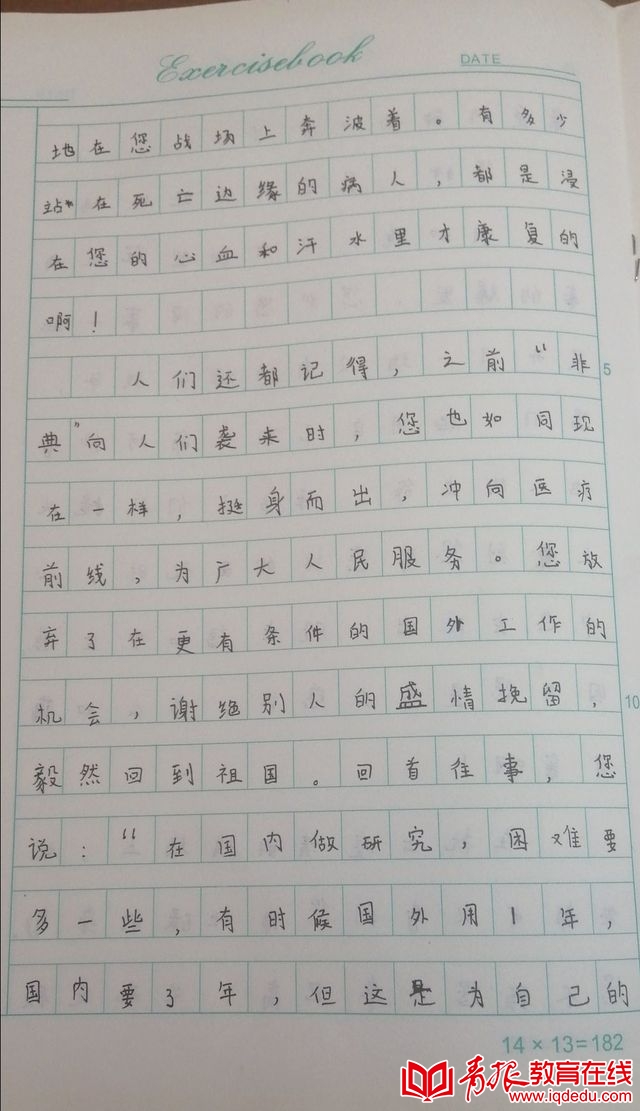 Exercisebook
DATE
地在您战场上奔波着。有多少
站在死亡边缘的病人，都是浸
在您的心血和汗水里才康复的
啊！
人们还都记得，之前“非
5
典”向人们袭来时，您也如同现
在一样，挺身而出，冲向医疗
前线，为广大人民服务。您放
弃了在更有条件的国外工作的
机会，谢绝别人的盛情挽留，
10
毅然回到祖国。回首往事，您
说：“在国内做研究，困难要
多一些，有时候国外用1年，
国内要3年，但这是为自己的
14×13=182
青报教育在线
www.iqdedu.com